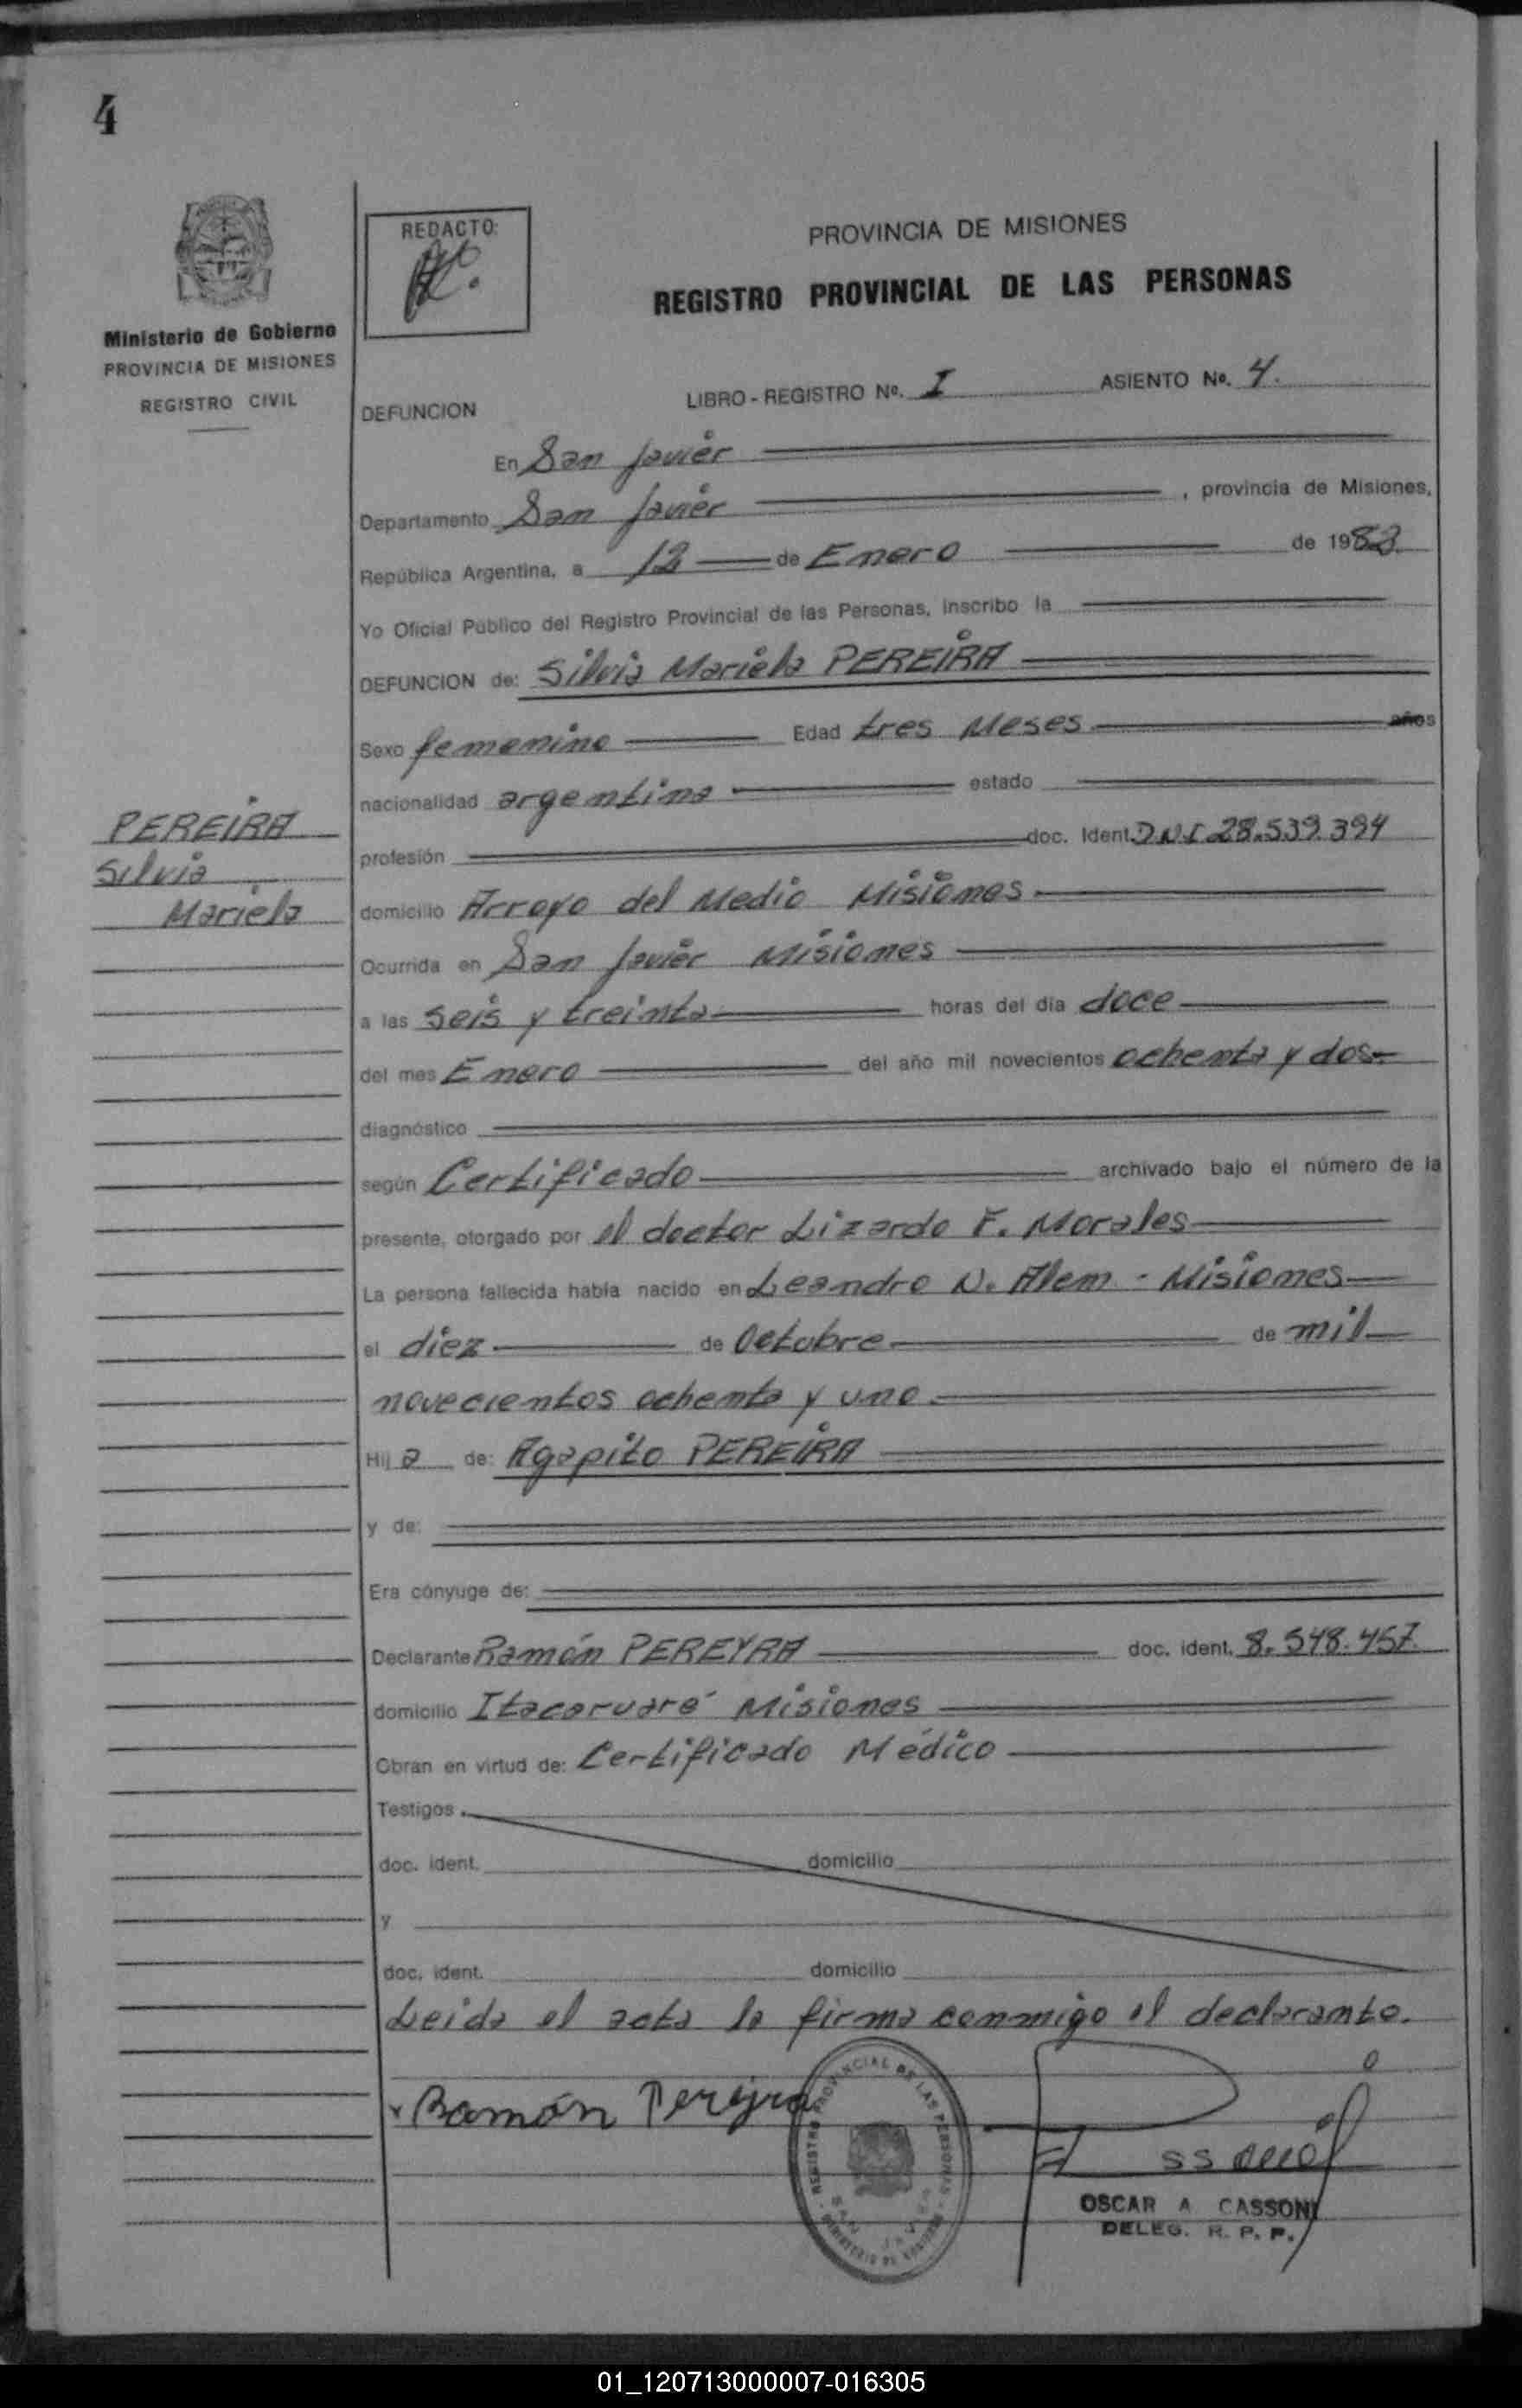 4
REDACTO:
Ministerio de Gobierno
PROVINCIA DE MISIONES
REGISTRO CIVIL
PROVINCIA DE MISIONES
REGISTRO PROVINCIAL DE LAS PERSONAS
LIBRO - REGISTRO Nº. I ASIENTO Nº. 4.
DEFUNCION
En San Javier
Departamento San Javier , provincia de Misiones,
República Argentina, a 12 de Enero de 1982
Yo Oficial Público del Registro Provincial de las Personas, inscribo la
DEFUNCION de: Silvia Mariela PEREIRA
Sexo femenino Edad tres Meses años
nacionalidad argentina estado
PEREIRA
Silvia
Mariela
profesión doc. Ident. DNI 28.539.394
domicilio Arroyo del Medio Misiones
Ocurrida en San Javier Misiones
a las seis y treinta horas del día doce
del mes Enero del año mil novecientos ochenta y dos
diagnóstico
según Certificado archivado bajo el número de la
presente, otorgado por el doctor Lizardo F. Morales
La persona fallecida había nacido en Leandro N. Alem - Misiones
el diez de Octubre de mil
novecientos ochenta y uno.
Hij a de: Agapito PEREIRA
y de:
Era cónyuge de:
Declarante Ramón PEREYRA doc. ident. 8.548.457.
domicilio Itacaruaré Misiones
Obran en virtud de: Certificado Médico
Testigos
doc. ident. domicilio
y
doc. ident. domicilio
Leida el acta la firma conmigo el declarante.
Ramón Pereyra
REGISTRO PROVINCIAL DE LAS PERSONAS
SAN JAVIER
MINISTERIO DE GOBIERNO
OSCAR A CASSONI
DELEG. R. P. P.
01_120713000007-016305